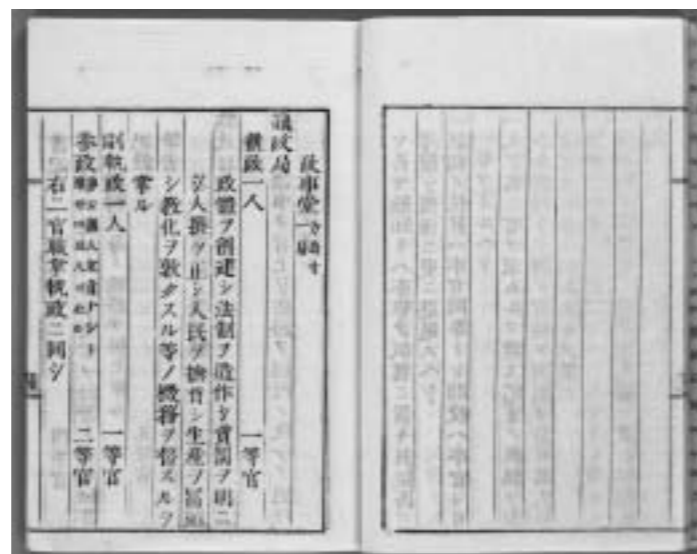 政事堂
議政局
執政一人　一等官
政體ヲ創建シ法制ヲ造作シ賞罰ヲ明ニ
シ人撰ヲ正シ人民ヲ撫育シ生産ヲ富
シ教化ヲ敦クスル等ノ機務ヲ督スルヲ
掌ル
副執政一人　一等官
参政　二等官
右二官職掌執政ニ同シ